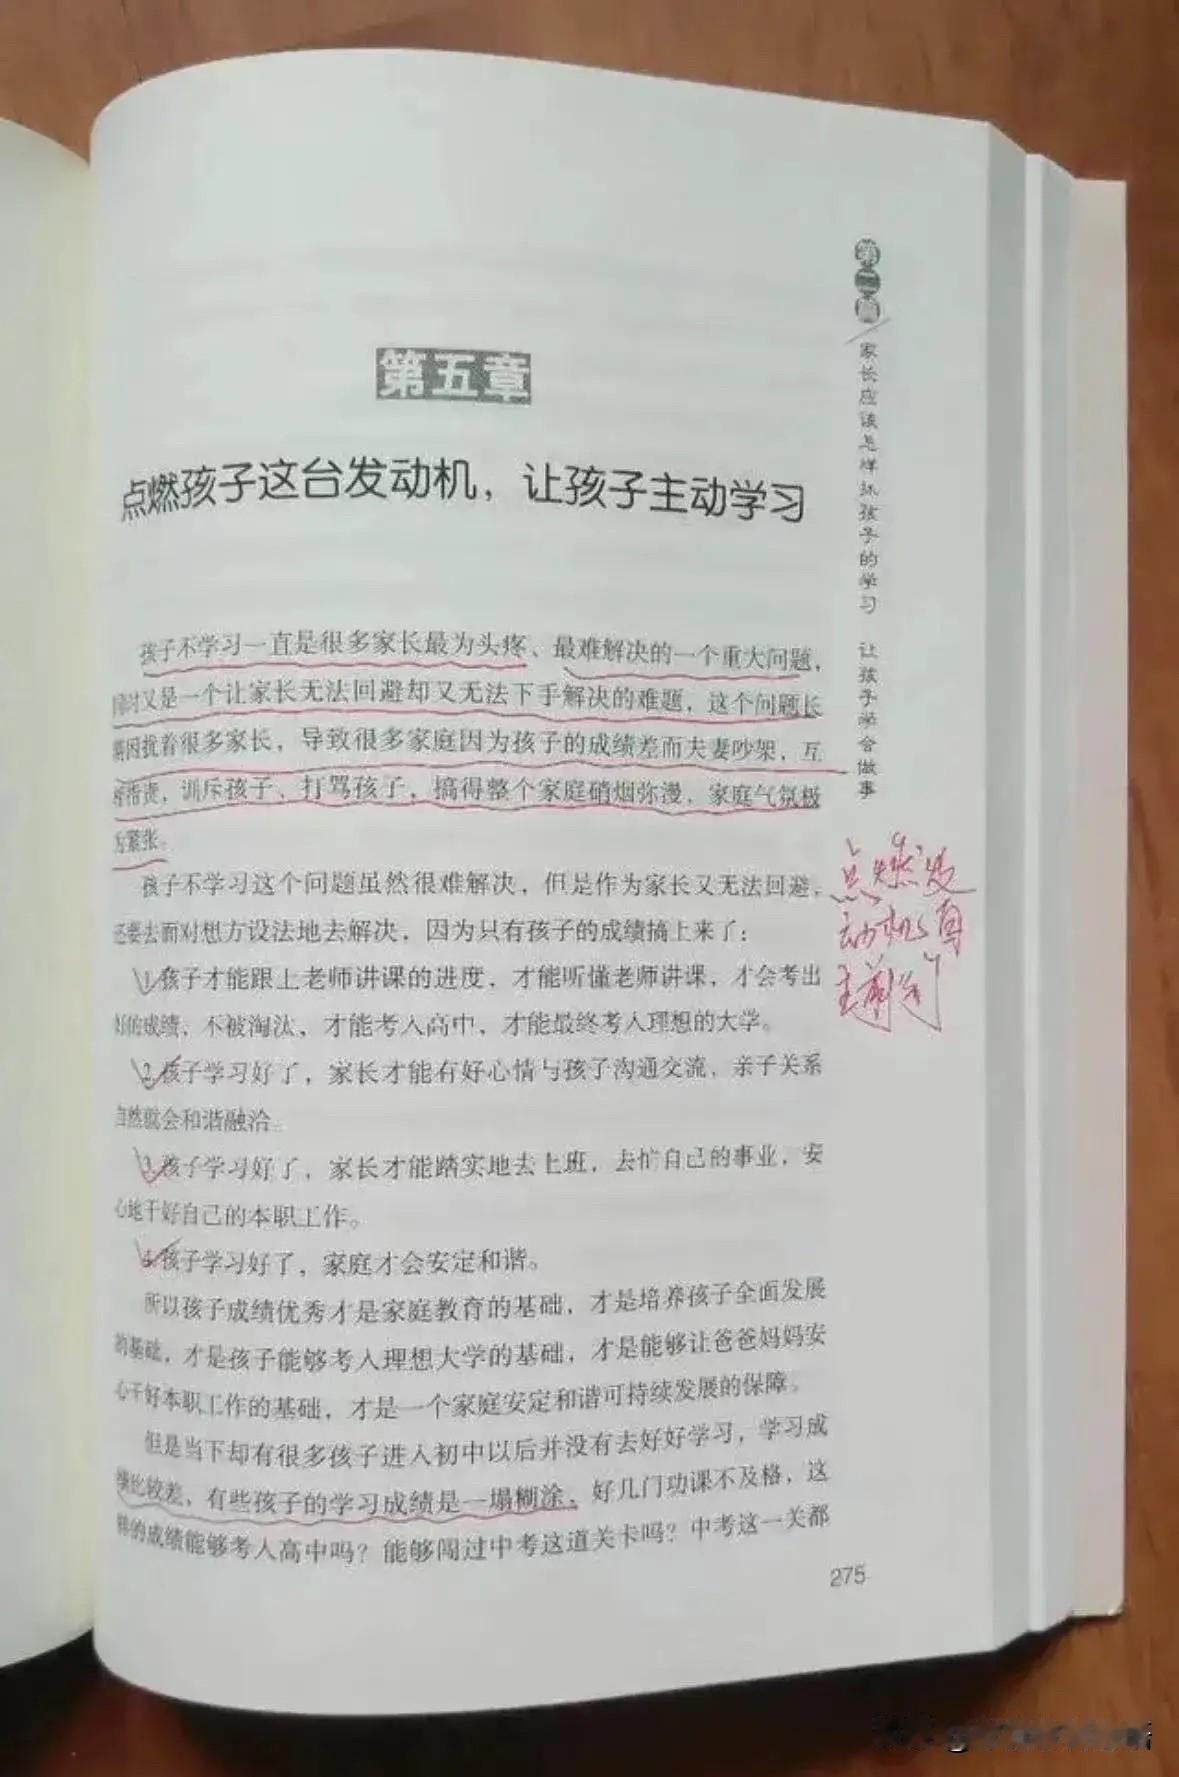 第五章
点燃孩子这台发动机，让孩子主动学习
孩子不学习一直是很多家长最为头疼、最难解决的一个重大问题，
同时又是一个让家长无法回避却又无法下手解决的难题，这个问题长
期困扰着很多家长，导致很多家庭因为孩子的成绩差而夫妻吵架，互
相指责，训斥孩子、打骂孩子，搞得整个家庭硝烟弥漫，家庭气氛极
为紧张。
孩子不学习这个问题虽然很难解决，但是作为家长又无法回避，
还要去面对想方设法地去解决，因为只有孩子的成绩搞上来了：
1.孩子才能跟上老师讲课的进度，才能听懂老师讲课，才会考出
好的成绩，不被淘汰，才能考入高中，才能最终考入理想的大学。
2.孩子学习好了，家长才能有好心情与孩子沟通交流，亲子关系
自然就会和谐融洽。
3.孩子学习好了，家长才能踏实地去上班，去忙自己的事业，安
心地干好自己的本职工作。
4.孩子学习好了，家庭才会安定和谐。
所以孩子成绩优秀才是家庭教育的基础，才是培养孩子全面发展
的基础，才是孩子能够考入理想大学的基础，才是能够让爸爸妈妈安
心干好本职工作的基础，才是一个家庭安定和谐可持续发展的保障。
但是当下却有很多孩子进入初中以后并没有去好好学习，学习成
绩比较差，有些孩子的学习成绩是一塌糊涂，好几门功课不及格，这
样的成绩能够考入高中吗？能够闯过中考这道关卡吗？中考这一关都
275
第二篇
家长应该怎样抓孩子的学习 让孩子学会做事
点燃发
动机